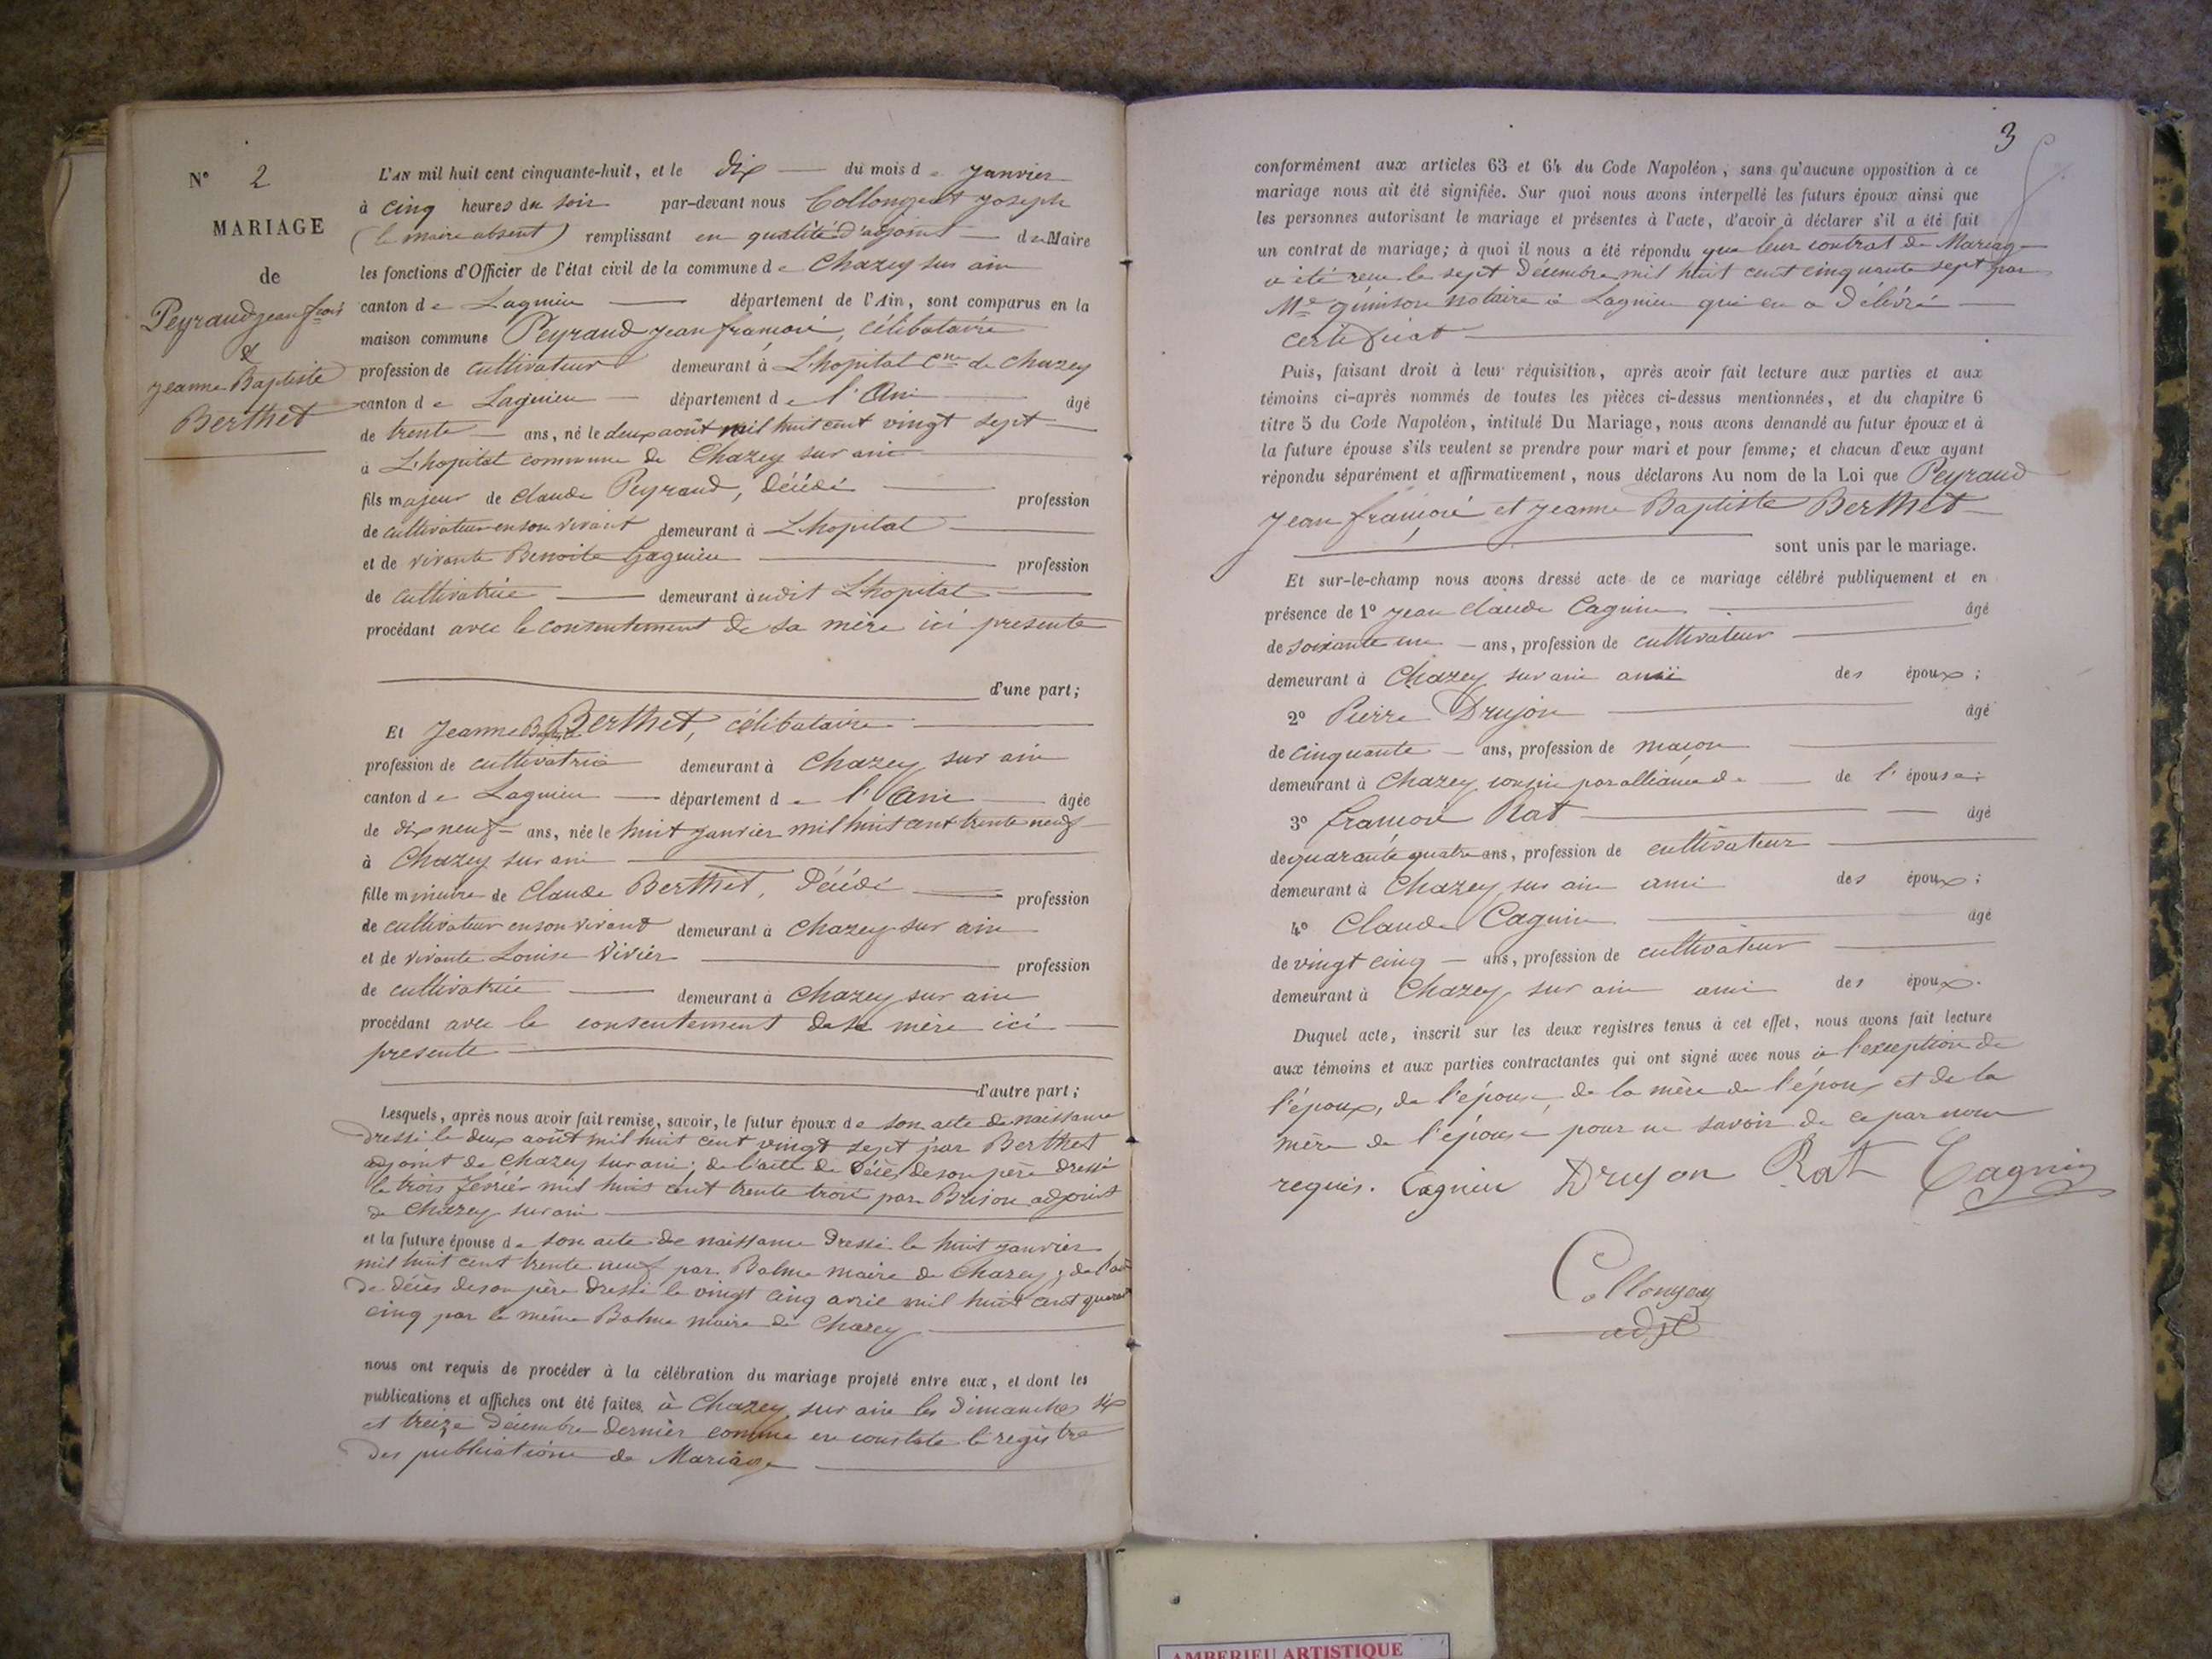 N° 2
MARIAGE
de
Peyraud jean f.cois
&
jeanne Baptiste
Berthet
L'AN mil huit cent cinquante-huit, et le dix du mois de janvier
à cinq heures du soir par-devant nous Collongeat joseph
(le maire absent) remplissant en qualité d'adjoint du Maire
les fonctions d'Officier de l'état civil de la commune de Chazey sur ain
canton de Lagnieu département de l'Ain, sont comparus en la
maison commune Peyraud jean françois, célibataire
profession de cultivateur demeurant à L'hopital cne de Chazey
canton de Lagnieu département de l'Ain âgé
de trente ans, né le deux août mil huit cent vingt sept
à L'hopital commune de Chazey sur ain
fils majeur de Claude Peyraud, décédé profession
de cultivateur en son vivant demeurant à L'hopital
et de vivante Benoite Gagnieu profession
de cultivatrice demeurant audit L'hopital
procédant avec le consentement de sa mère ici presente
d'une part;
Et Jeanne Baptiste Berthet, célibataire
profession de cultivatrice demeurant à Chazey sur ain
canton de Lagnieu département de l'Ain âgée
de dix neuf ans, née le huit janvier mil huit cent trente neuf
à Chazey sur ain
fille mineure de Claude Berthet, décédé profession
de cultivateur en son vivant demeurant à Chazey sur ain
et de vivante Louise Vivier profession
de cultivatrice demeurant à Chazey sur ain
procédant avec le consentement de sa mère ici
presente
d'autre part;
Lesquels, après nous avoir fait remise, savoir, le futur époux de son acte de naissance
dressé le deux août mil huit cent vingt sept par Berthet
adjoint de Chazey sur ain; de l'acte de décès de son père dressé
le trois février mil huit cent trente trois par Brison adjoint
de Chazey sur ain
et la future épouse de son acte de naissance dressé le huit janvier
mil huit cent trente neuf par Balme maire de Chazey; de l'acte
de décès de son père dressé le vingt cinq avril mil huit cent quarante
cinq par le même Balme maire de Chazey
nous ont requis de procéder à la célébration du mariage projeté entre eux, et dont les
publications et affiches ont été faites à Chazey sur ain les dimanches six
et treize décembre dernier comme en constate le registre
des publications de Mariage
3
conformément aux articles 63 et 64 du Code Napoléon, sans qu'aucune opposition à ce
mariage nous ait été signifiée. Sur quoi nous avons interpellé les futurs époux ainsi que
les personnes autorisant le mariage et présentes à l'acte, d'avoir à déclarer s'il a été fait
un contrat de mariage; à quoi il nous a été répondu que leur contrat de Mariage
a été reçu le sept décembre mil huit cent cinquante sept par
Me Quinson notaire à Lagnieu qui en a délivré
certificat
Puis, faisant droit à leur réquisition, après avoir fait lecture aux parties et aux
témoins ci-après nommés de toutes les pièces ci-dessus mentionnées, et du chapitre 6
titre 5 du Code Napoléon, intitulé Du Mariage, nous avons demandé au futur époux et à
la future épouse s'ils veulent se prendre pour mari et pour femme; et chacun d'eux ayant
répondu séparément et affirmativement, nous déclarons Au nom de la Loi que Peyraud
jean françois et jeanne Baptiste Berthet
sont unis par le mariage.
Et sur-le-champ nous avons dressé acte de ce mariage célébré publiquement et en
présence de 1° jean Claude Cagnin âgé
de soixante un ans, profession de cultivateur
demeurant à Chazey sur ain ami des époux;
2° Pierre Drujon âgé
de cinquante ans, profession de maçon
demeurant à Chazey cousin par alliance de de l'épouse;
3° françois Rat âgé
de quarante quatre ans, profession de cultivateur
demeurant à Chazey sur ain ami des époux;
4° Claude Cagnin âgé
de vingt cinq ans, profession de cultivateur
demeurant à Chazey sur ain ami des époux.
Duquel acte, inscrit sur les deux registres tenus à cet effet, nous avons fait lecture
aux témoins et aux parties contractantes qui ont signé avec nous à l'exception de
l'époux, de l'épouse, de la mère de l'époux et de la
mère de l'épouse pour ne savoir de ce par nous
requis. Cagnin Drujon Rat Cagnin
Collongeat
adjt
AMBERIEU ARTISTIQUE